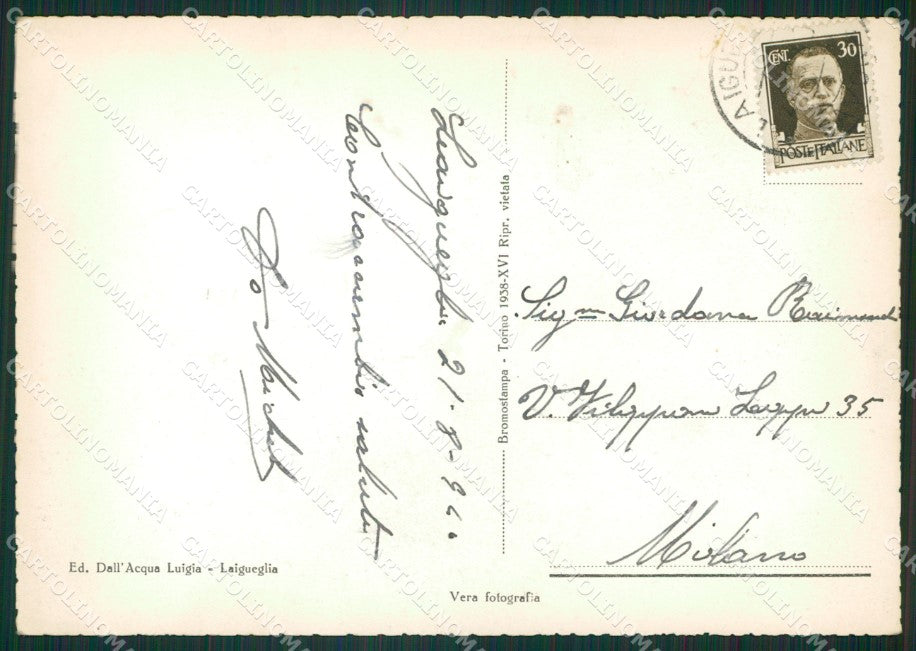 Laigueglia 21-8-940
Contraccambio saluti
LAIGU
CENT. 30
POSTE ITALIANE
Bromostampa - Torino 1938-XVI Ripr. vietata
Sig.na Giordana Raimondi
V. Filippino Lippi 35
Milano
Ed. Dall'Acqua Luigia - Laigueglia
Vera fotografia
CARTOLINOMANIA